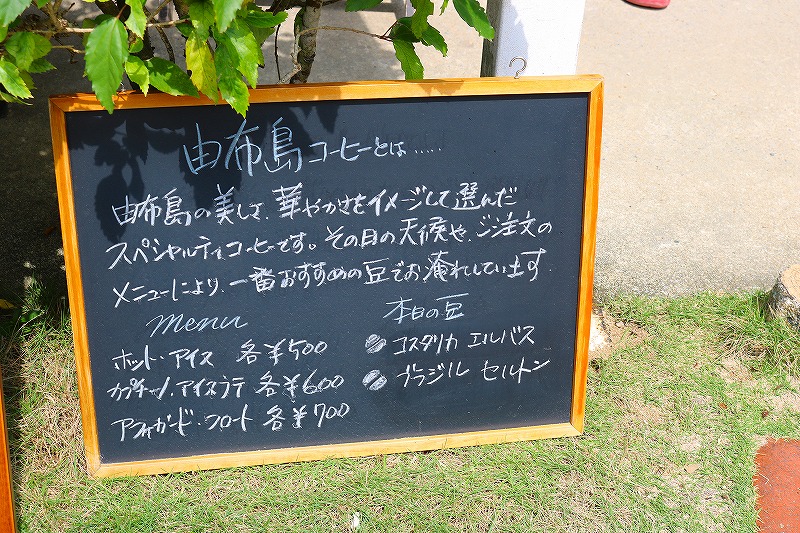 由布島コーヒーとは.....
由布島の美しさ、華やかさをイメージして選んだ
スペシャルティコーヒーです。その日の天候や、ご注文の
メニューにより、一番おすすめの豆でお淹れしています.
menu
ホット・アイス 各¥500
カプチーノ.アイスラテ 各¥600
アフォガード・フロート 各¥700
本日の豆
コスタリカ エルバス
ブラジル セルトン